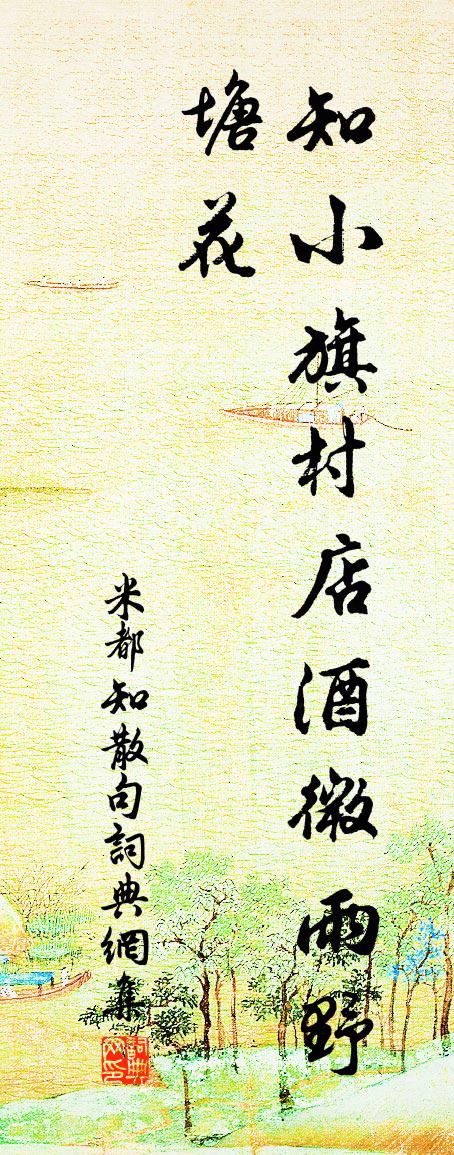 知小旗村店酒微雨野
塘花
米都知散句詞典網集